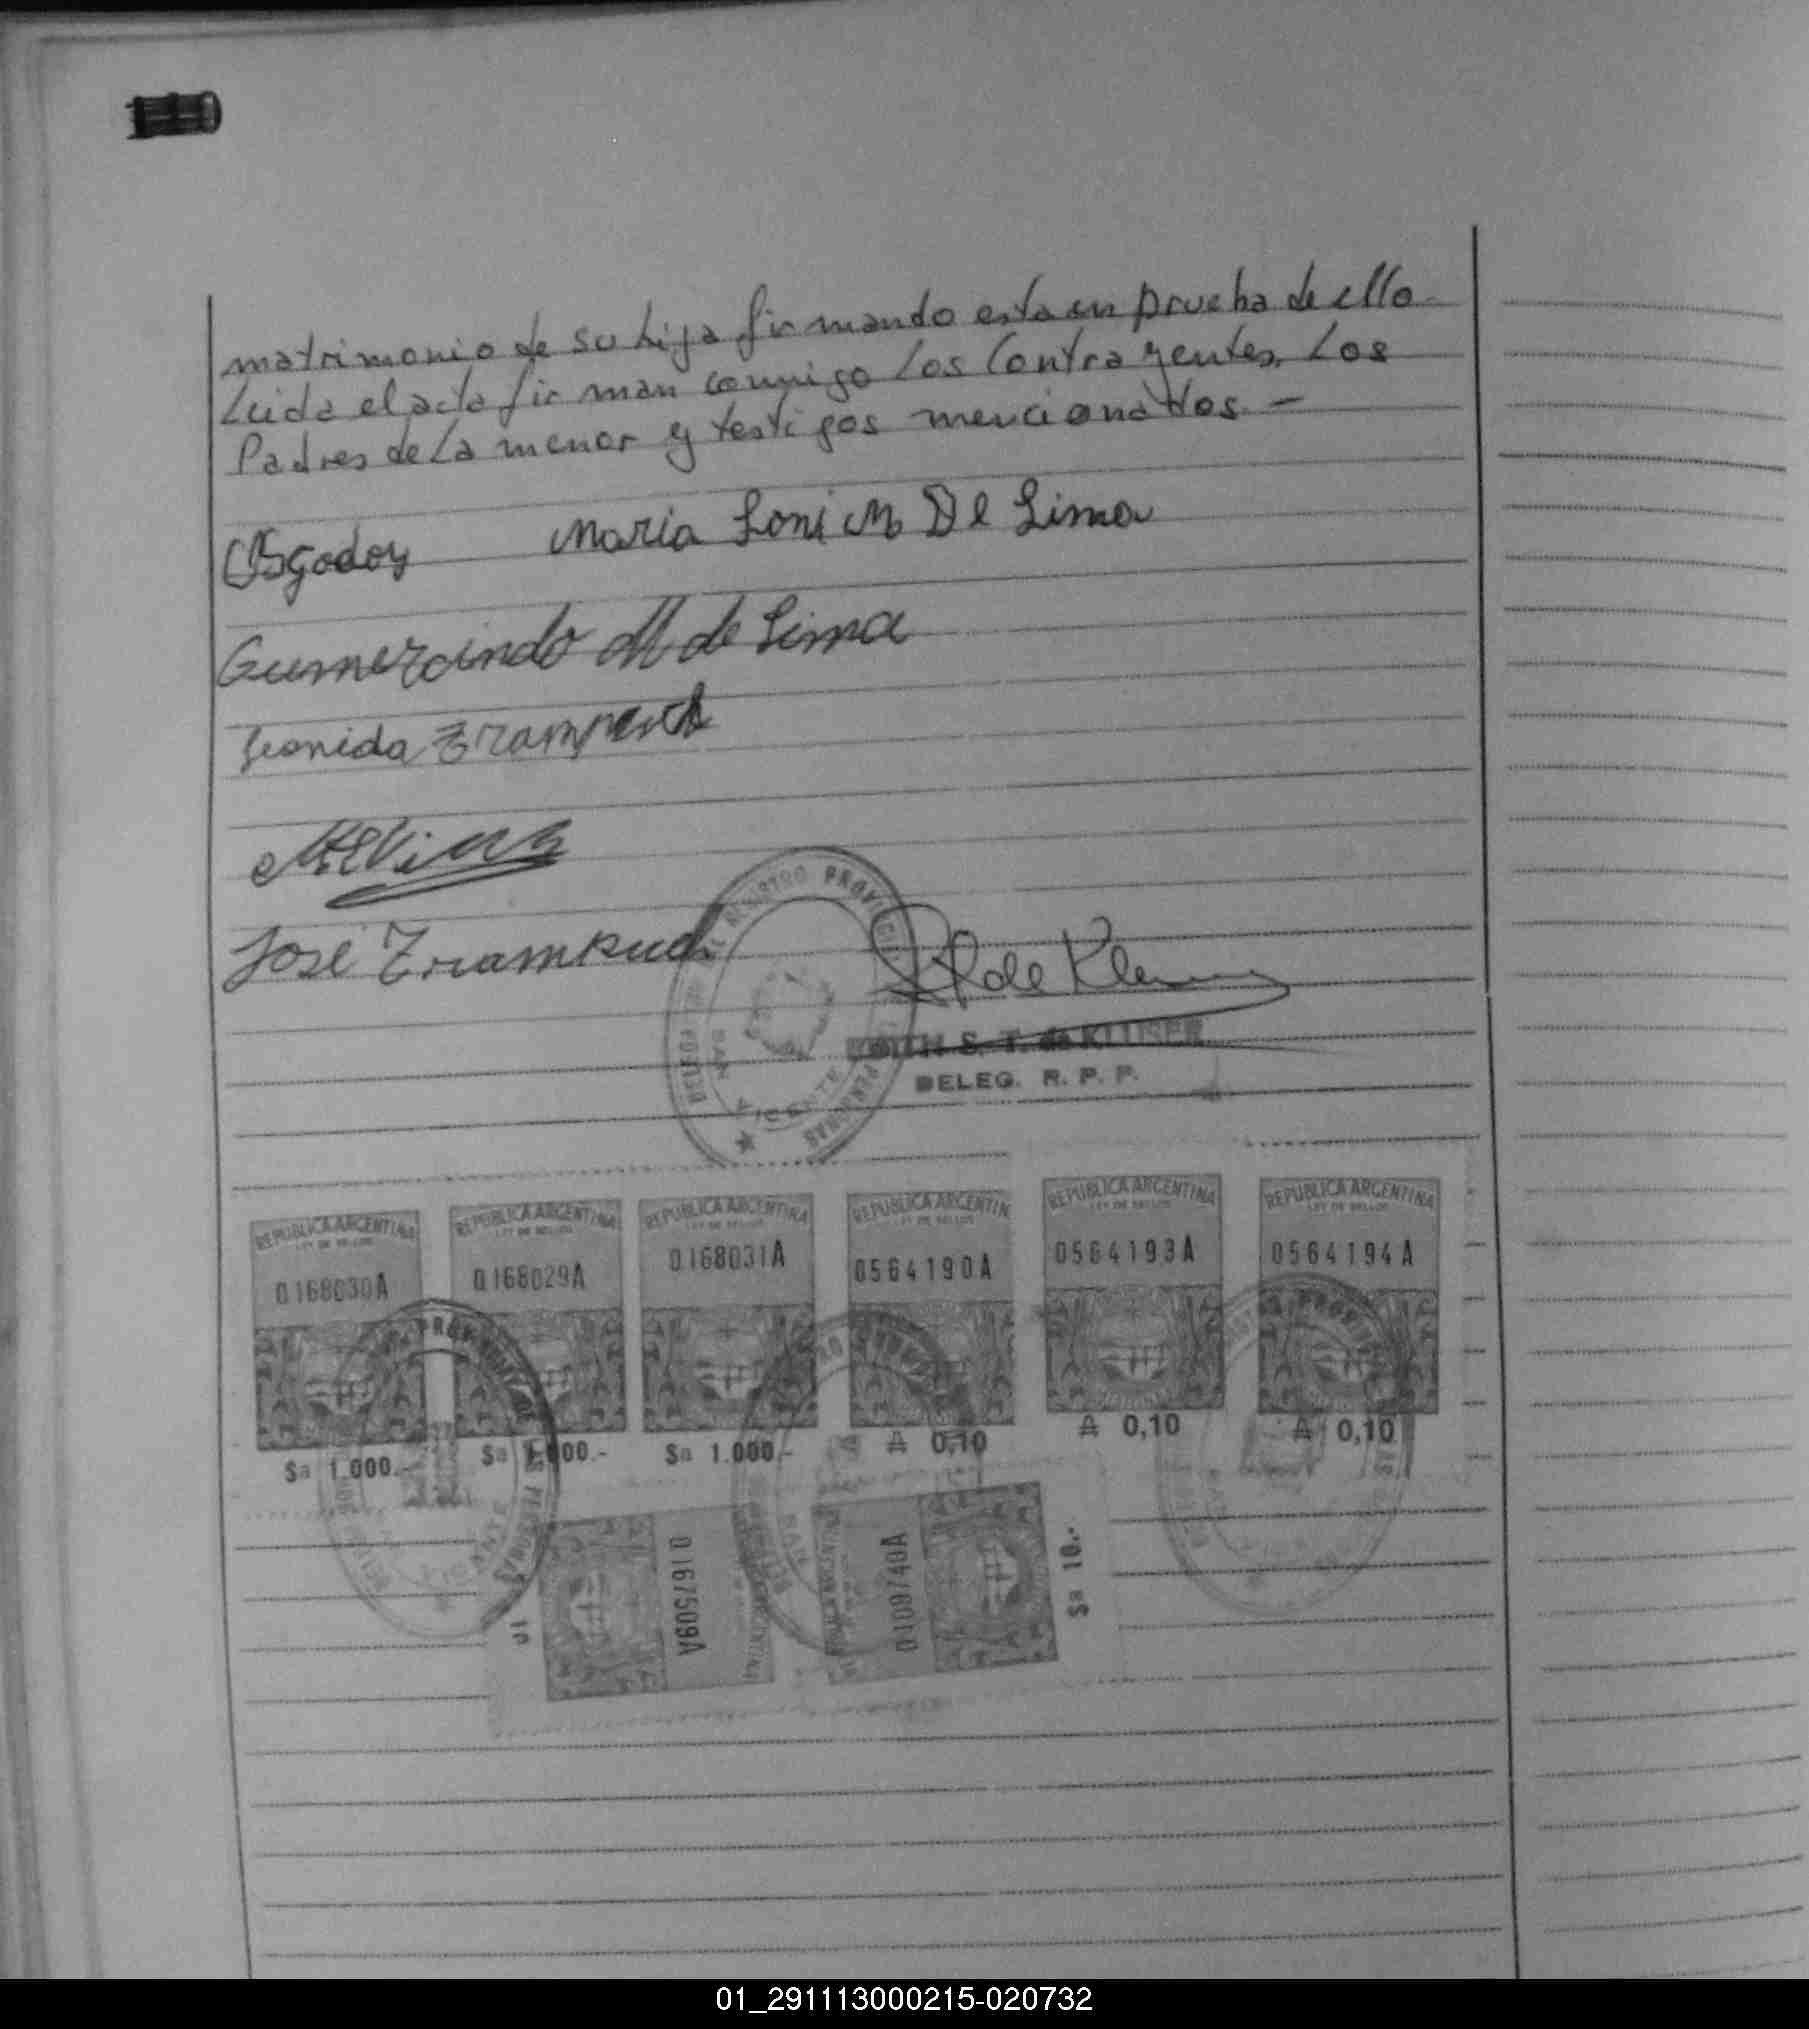 matrimonio de su hija firmando esta en prueba de ello
Leida el acta firman conmigo los Contrayentes, Los
Padres de la menor y testigos mencionados. -
Maria Loni M De Lima
Gumercindo M de Lima
Leonida
José
de
REGISTRO PROVINCIAL
PERSONAS
SAN VICENTE
S. T. de KLUSER
DELEG. R. P. P.
REPUBLICA ARGENTINA
LEY DE SELLOS
0168030A
$a 1.000.-
REPUBLICA ARGENTINA
LEY DE SELLOS
0168029A
$a 1.000.-
REPUBLICA ARGENTINA
LEY DE SELLOS
0168031A
$a 1.000.-
REPUBLICA ARGENTIN
LEY DE SELLOS
0564190A
₳ 0,10
REPUBLICA ARGENTINA
LEY DE SELLOS
0564193A
₳ 0,10
REPUBLICA ARGENTINA
LEY DE SELLOS
0564194A
₳ 0,10
0167509A
10
0109740A
$a 10.-
01_291113000215-020732